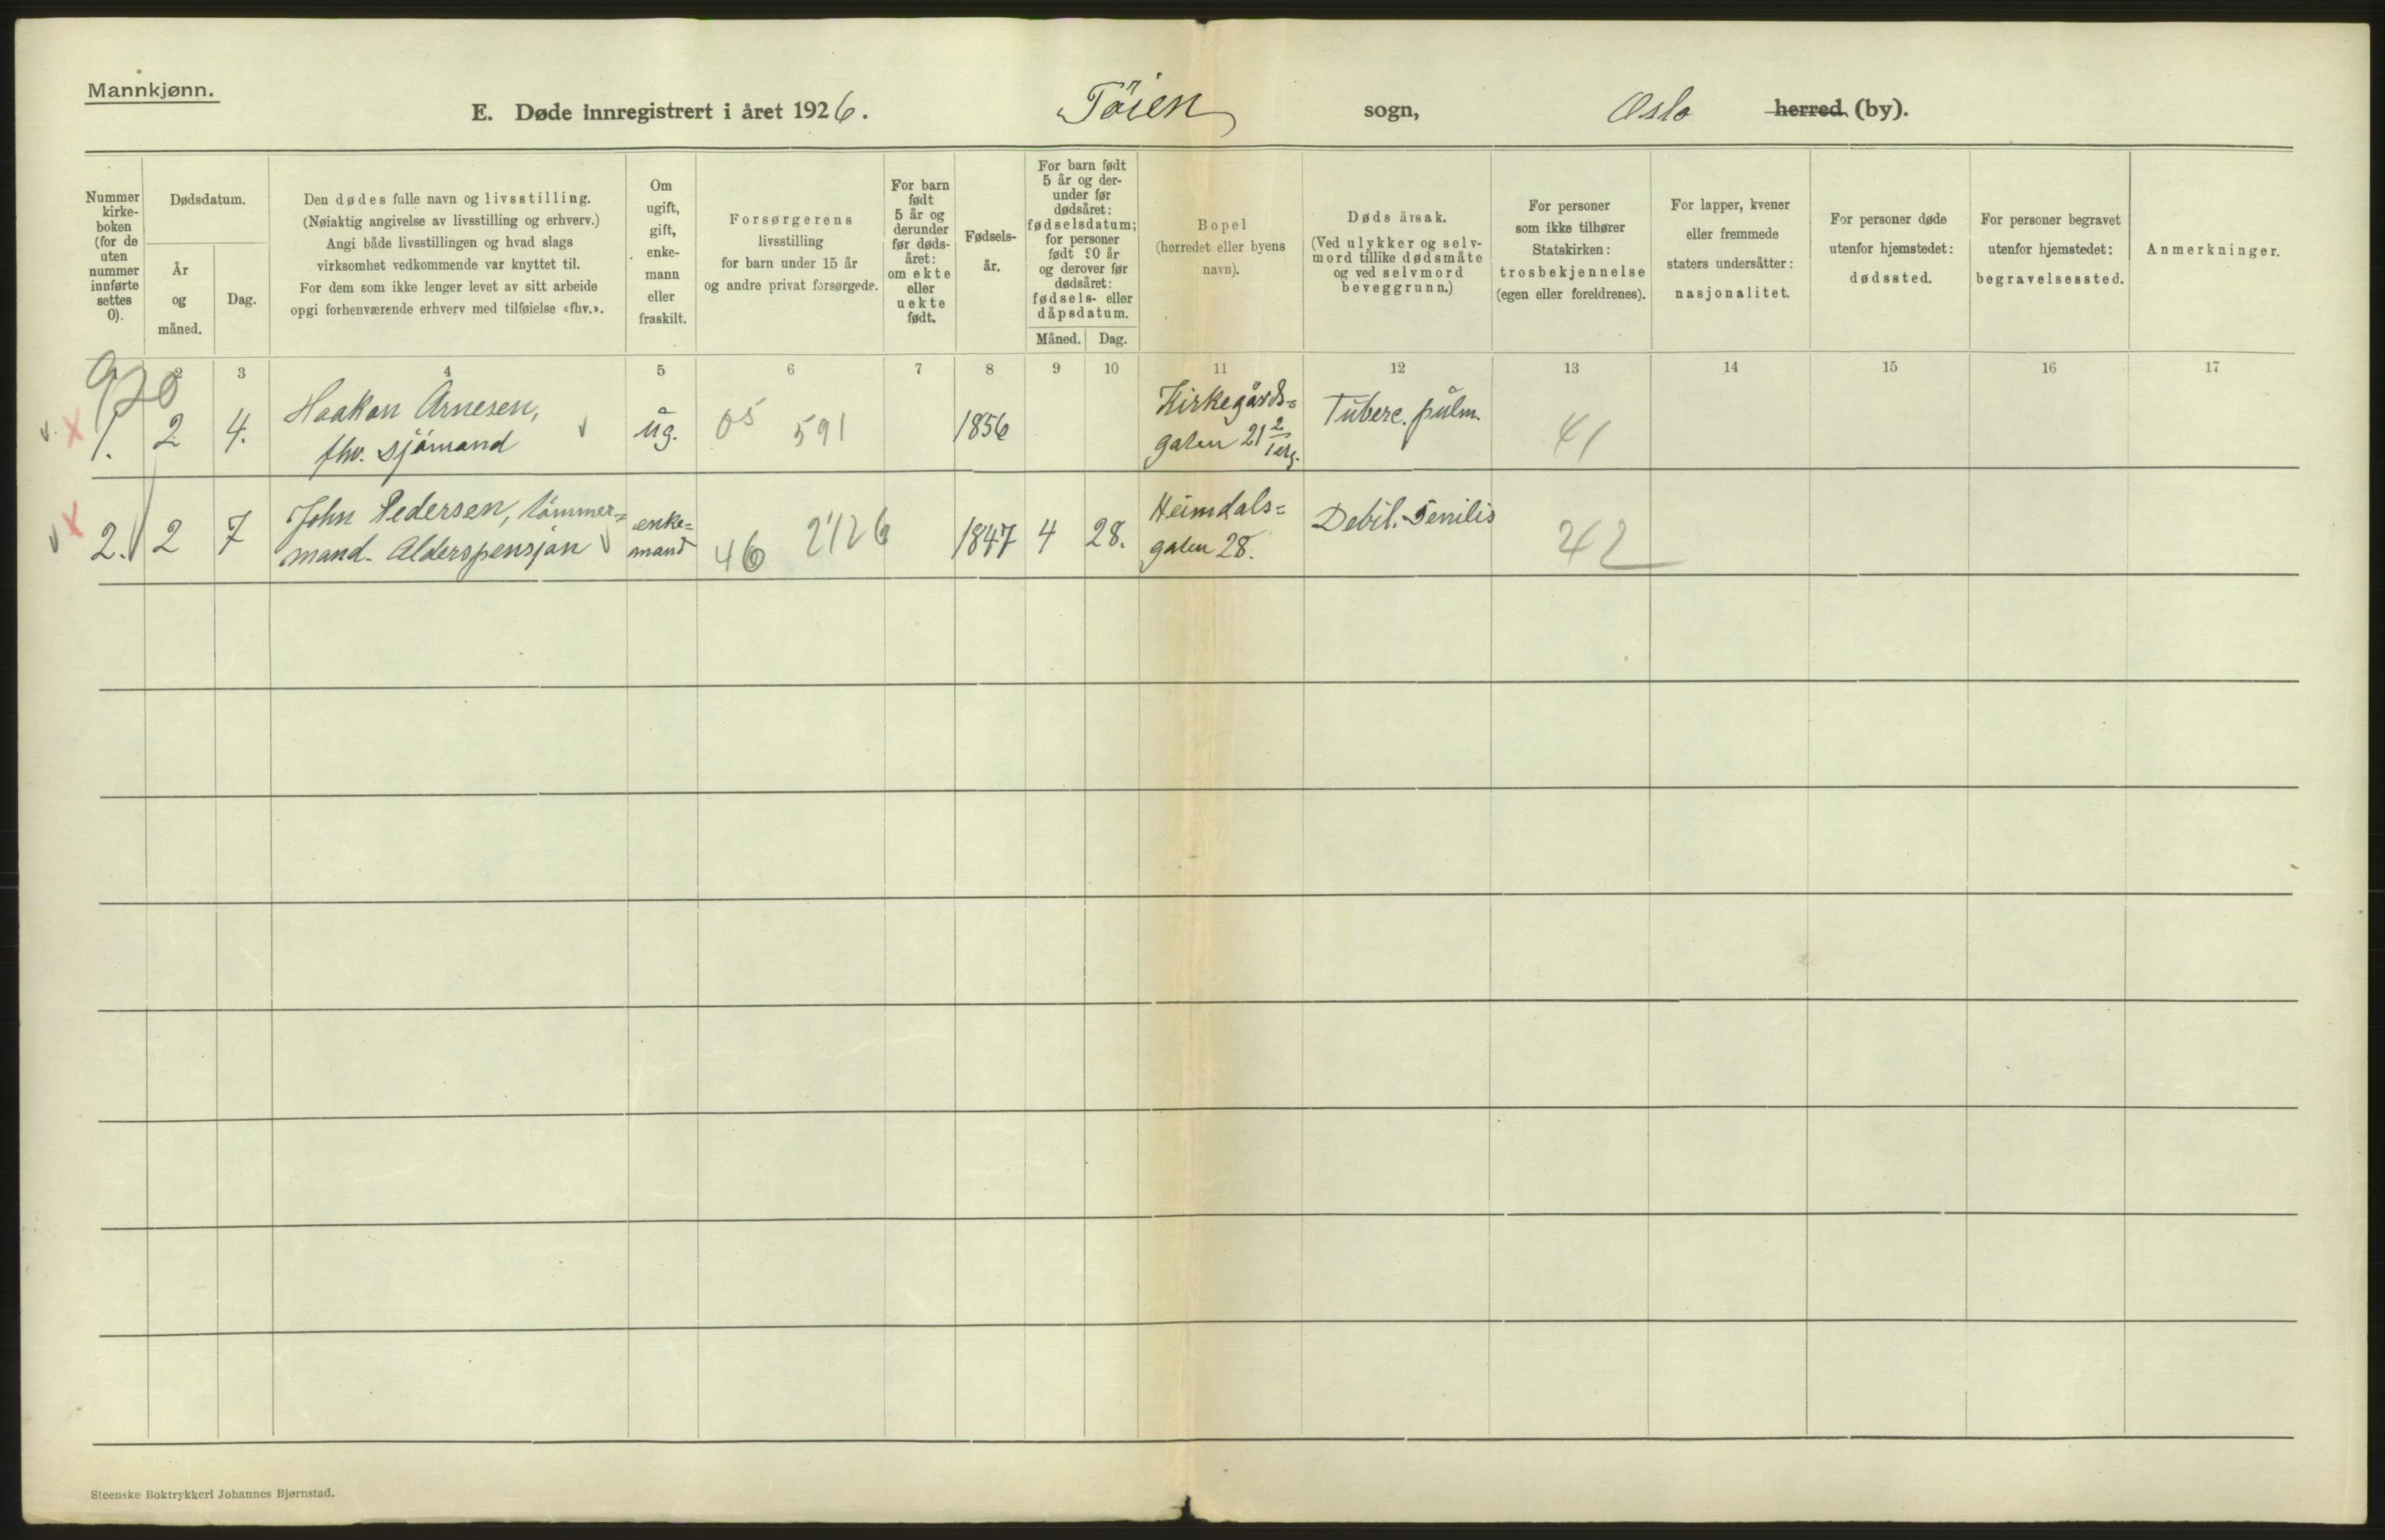 Mannkjønn.
E. Døde innregistrert i året 1926. Töien sogn, Oslo herred (by).
Nummer
kirke-
boken
(for de
uten
nummer
innførte
settes
0).
Dødsdatum.
År
og
måned.
Dag.
Den dødes fulle navn og livsstilling.
(Nøiaktig angivelse av livsstilling og erhverv.)
Angi både livsstillingen og hvad slags
virksomhet vedkommende var knyttet til.
For dem som ikke lenger levet av sitt arbeide
opgi forhenværende erhverv med tilføielse «fhv.».
Om
ugift,
gift,
enke-
mann
eller
fraskilt.
Forsørgerens
livsstilling
for barn under 15 år
og andre privat forsørgede.
For barn
født
5 år og
derunder
før døds-
året:
om ekte
eller
uekte
født.
Fødsels-
år.
For barn født
5 år og der-
under før
dødsåret:
fødselsdatum;
for personer
født 90 år
og derover før
dødsåret:
fødsels- eller
dåpsdatum.
Måned. Dag.
Bopel
(herredet eller byens
navn).
Dødsårsak.
(Ved ulykker og selv-
mord tillike dødsmåte
og ved selvmord
beveggrunn.)
For personer
som ikke tilhører
Statskirken:
trosbekjennelse
(egen eller foreldrenes).
For lapper, kvener
eller fremmede
staters undersåtter:
nasjonalitet.
For personer døde
utenfor hjemstedet:
dødssted.
For personer begravet
utenfor hjemstedet:
begravelsessted.
Anmerkninger.
2 3 4 5 6 7 8 9 10 11 12 13 14 15 16 17
920
v. x 1. 2 4. Haakon Arnesen,
fhv. sjömand v ug. 05 591 1856 Kirkegårds=
gaten 21 2/1 etg. Tuberc. pulm. 41
v x 2. 2 7 John Pedersen, tömmer=
mand. Alderspensjon v enke=
mand 46 2126 1847 4 28. Heimdals=
gaten 28. Debil. Senilis 42
Steenske Boktrykkeri Johannes Bjørnstad.